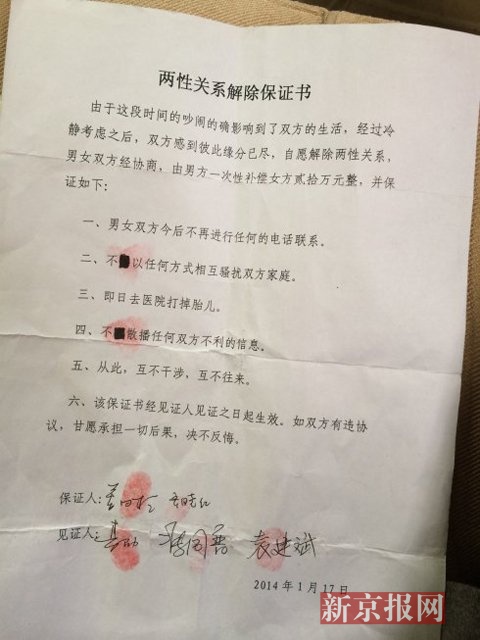 两性关系解除保证书
由于这段时间的吵闹的确影响到了双方的生活，经过冷
静考虑之后，双方感到彼此缘分已尽，自愿解除两性关系，
男女双方经协商，由男方一次性补偿女方贰拾万元整，并保
证如下：
一、男女双方今后不再进行任何的电话联系。
二、不以任何方式相互骚扰双方家庭。
三、即日去医院打掉胎儿。
四、不散播任何双方不利的信息。
五、从此，互不干涉，互不往来。
六、该保证书经见证人见证之日起生效。如双方有违协
议，甘愿承担一切后果，决不反悔。
保证人：
见证人： 袁建斌
2014年1月17日
新京报网